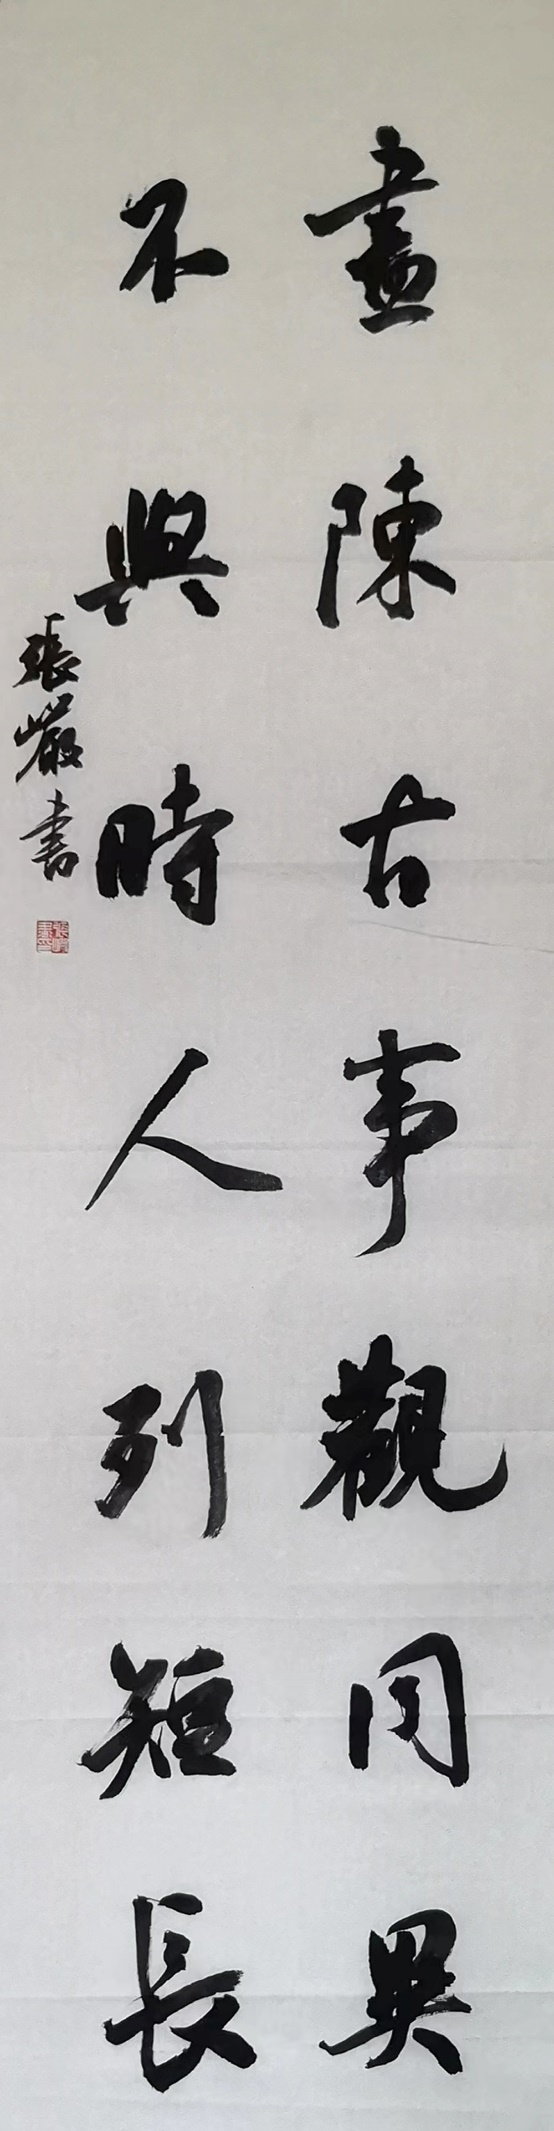 盡陳古事觀同異
不與時人列短長
張嚴書